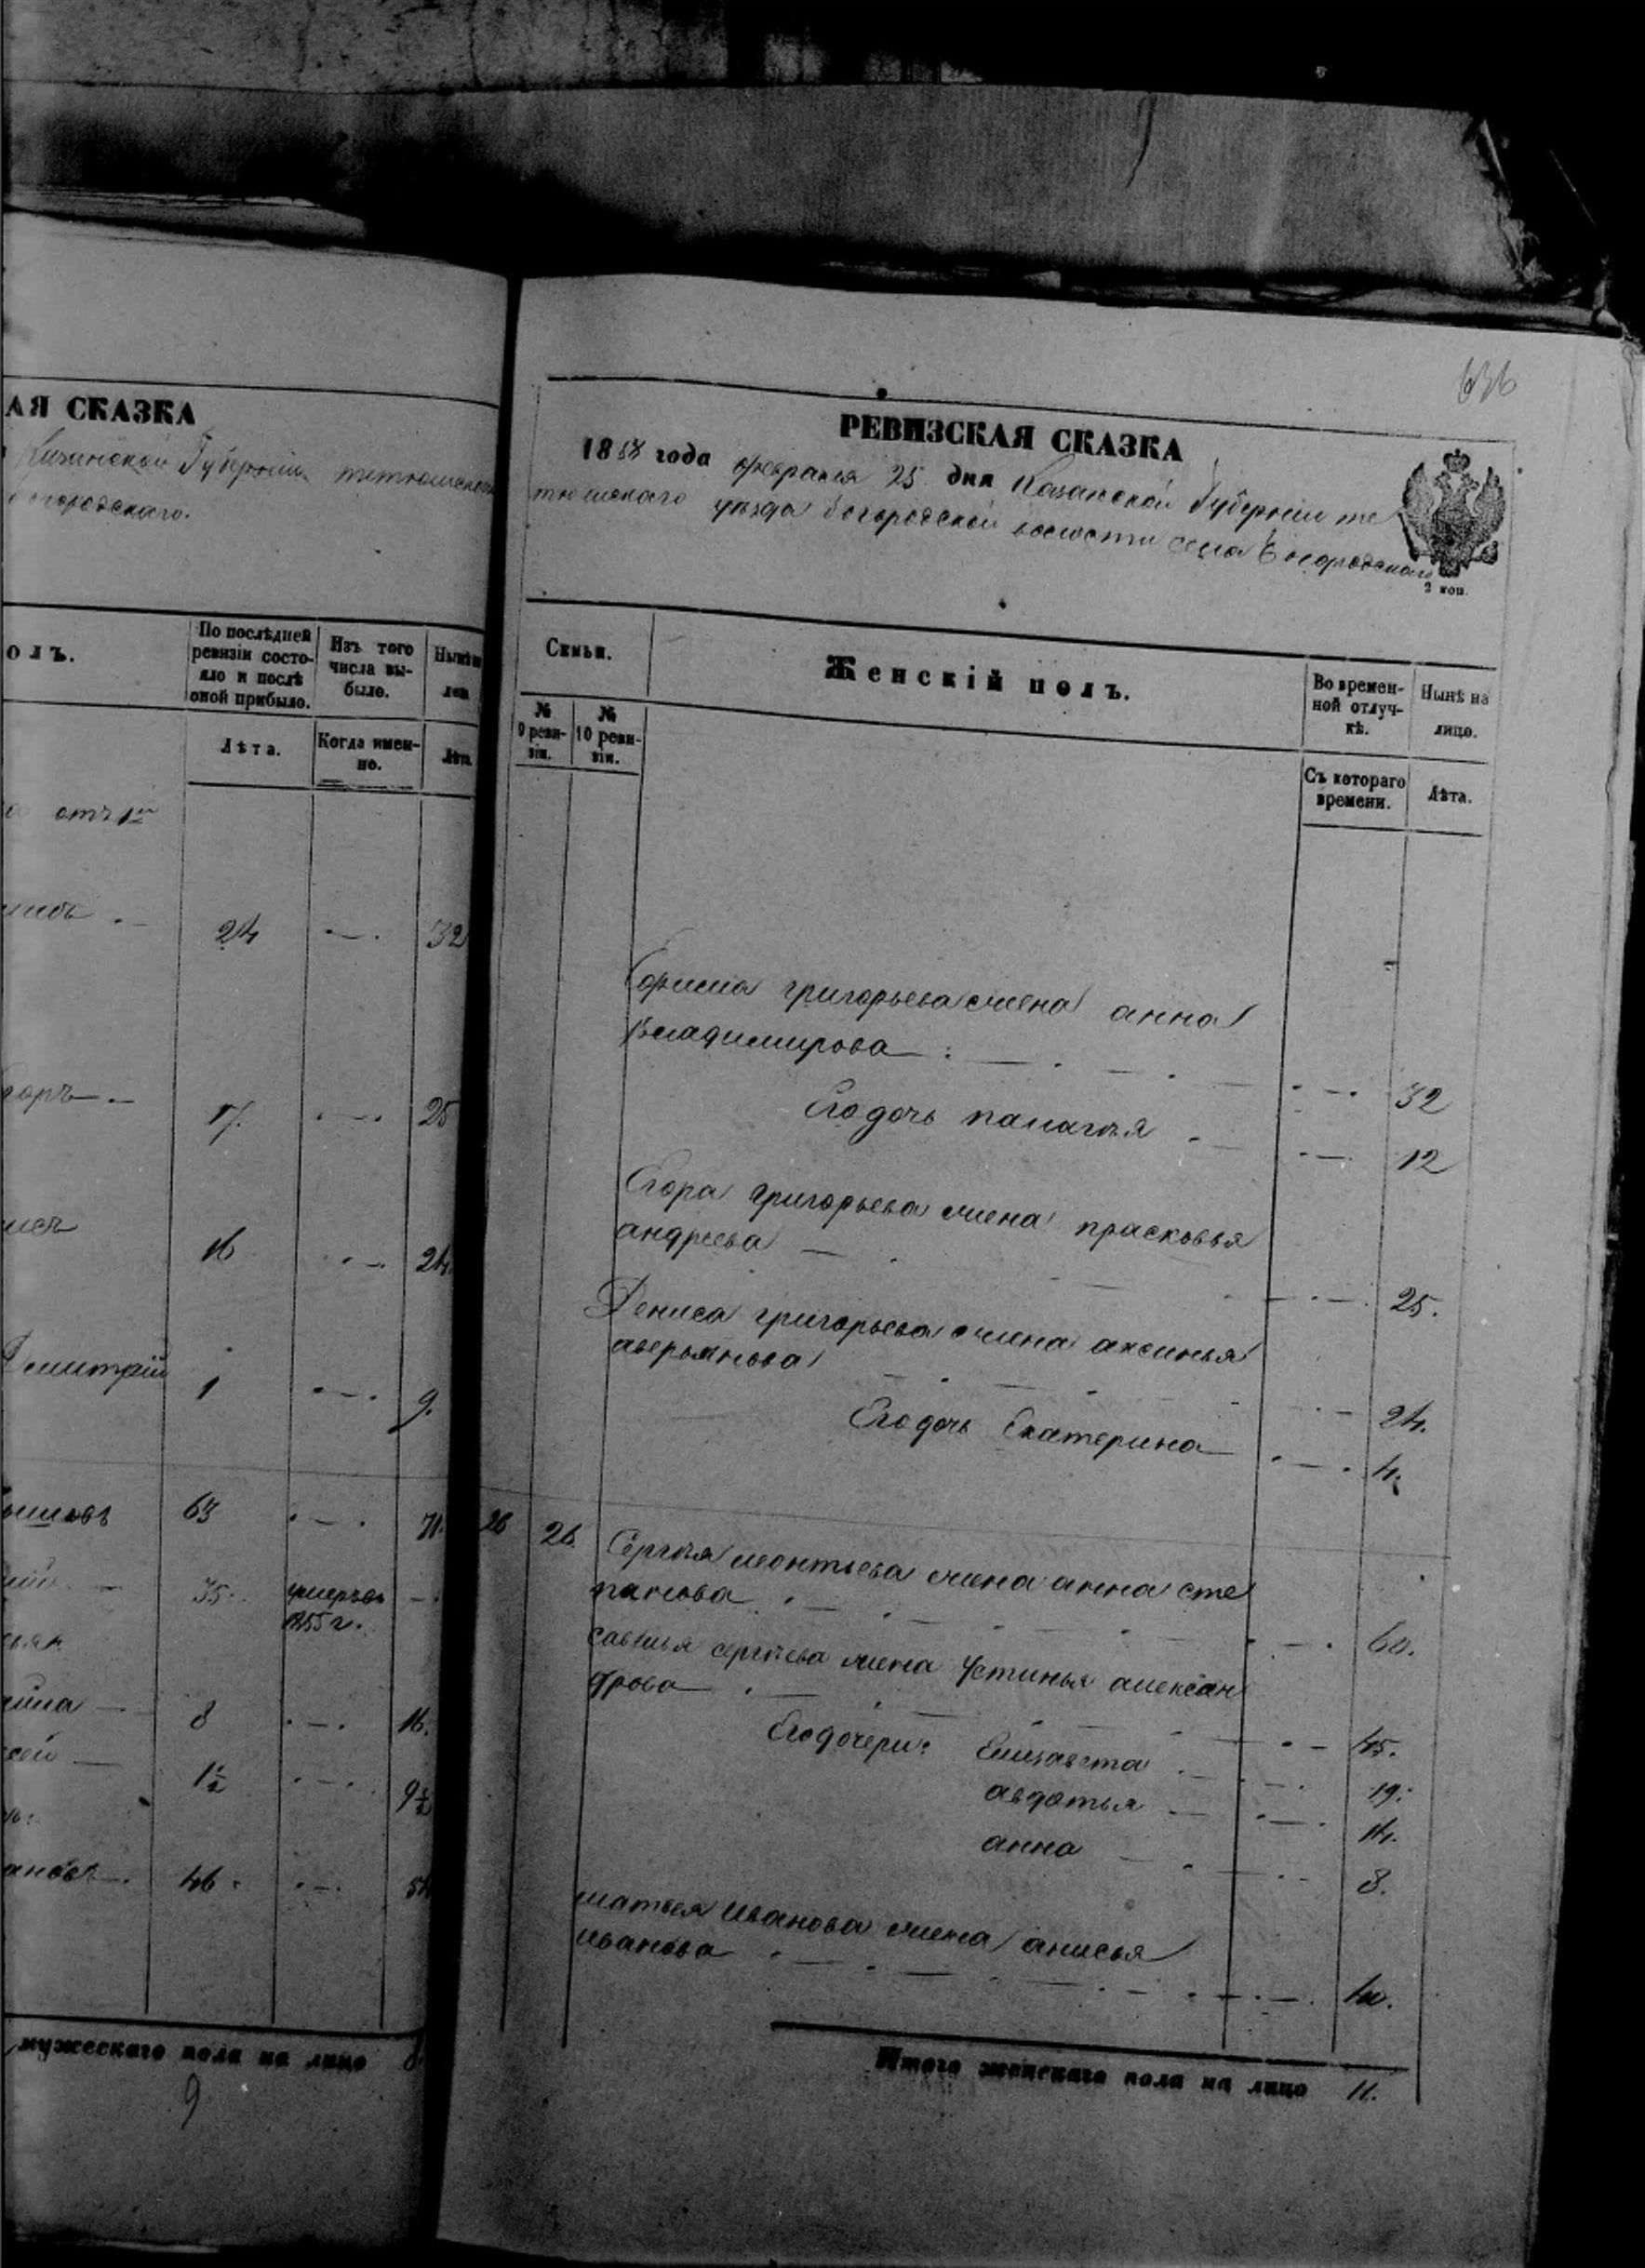 АЯ СКАЗКА
Казанской Губернии тетюшскаго
богородскаго.
олъ.
По послѣдней ревизіи состояло и послѣ оной прибыло.
Изъ того числа выбыло.
Нынѣ
Лѣта.
Когда именно.
Лѣта
отъ 1й
24 32
17. 25
16 24.
Дмитрій 1 9.
63 71.
35. умеръ въ 1855 г.
8 16.
1½ 9½
46 54
мужескаго пола на лицо 8.
9
636
РЕВИЗСКАЯ СКАЗКА
1858 года февраля 25 дня Казанской Губерніи те
тюшскаго уѣзда богородской волости села Богородскаго
2 коп.
Семьи.
Женскій полъ.
Во временной отлучкѣ.
Нынѣ на лицо.
№ 9 ревизіи.
№ 10 ревизіи.
Съ котораго времени.
Лѣта.
григорьева жена анна
Владимирова 32
Его дочь палагѣя 12
Егора григорьева жена прасковья
андреева 25.
Дениса григорьева жена аксинья
аверьянова 24.
Его дочь Екатерина 4.
26 26. Сергѣя леонтьева жена анна сте
панова 60.
савелья сергѣева жена Устинья алексан
дрова 45.
Его дочери: Елизавета 19.
авдотья 14.
анна 8.
матвея Иванова жена анисья
иванова 40.
Итого женскаго пола на лицо 11.